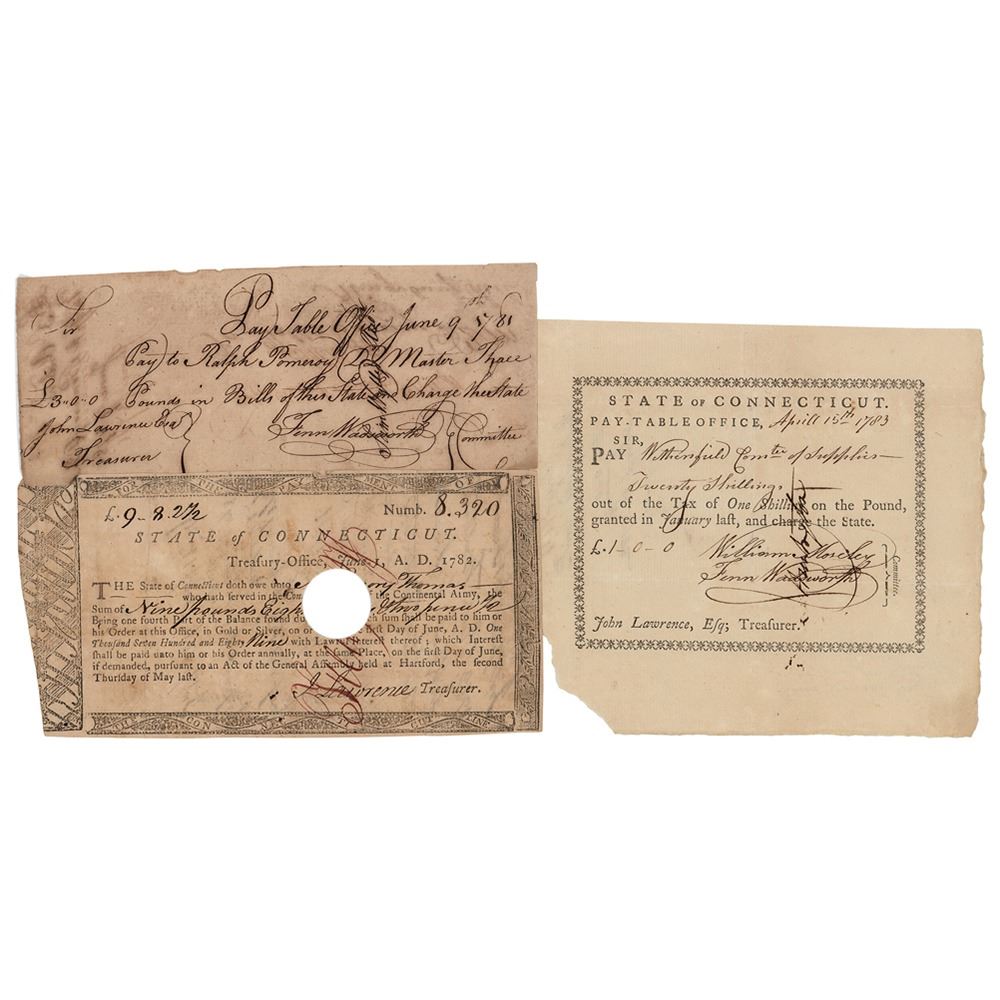 Sir Pay Table Office June 9th 1781
Pay to Ralph Pomeroy Master Three
£3-0-0 Pounds in Bills of this State and Charge the State
John Lawrence Esqr
Treasurer
Fenn Wadsworth
Committee
FOR MENT OF
£.9-8.2½ Numb. 8.320
STATE of CONNECTICUT.
Treasury-Office, June 1, A. D. 1782.
THE State of Connecticut doth owe unto Thomas
who hath served in the Con the Continental Army, the
Sum of Nine pounds Eigh two pence
Being one fourth Part of the Balance found du sum shall be paid to him or
his Order at this Office, in Gold or Silver, on or First Day of June, A. D. One
Thousand Seven Hundred and Eighty Nine with Lawful Interest thereof; which Interest
shall be paid unto him or his Order annually, at the same Place, on the first Day of June,
if demanded, pursuant to an Act of the General Assembly held at Hartford, the second
Thursday of May last.
J Lawrence Treasurer.
CON CUT LINE
STATE of CONNECTICUT.
PAY-TABLE OFFICE, Aprill 15th 1783
SIR,
PAY Wethersfield Comte of Supplies
Twenty Shillings
out of the Tax of One Shilling on the Pound,
granted in January last, and charge the State.
£.1-0-0 William Moseley
Fenn Wadsworth
Committee.
John Lawrence, Esq; Treasurer.